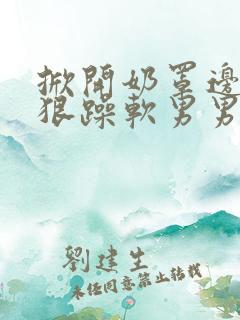 掀開奶罩邊
狠躁軟男男
劉建生
未经同意禁止转载